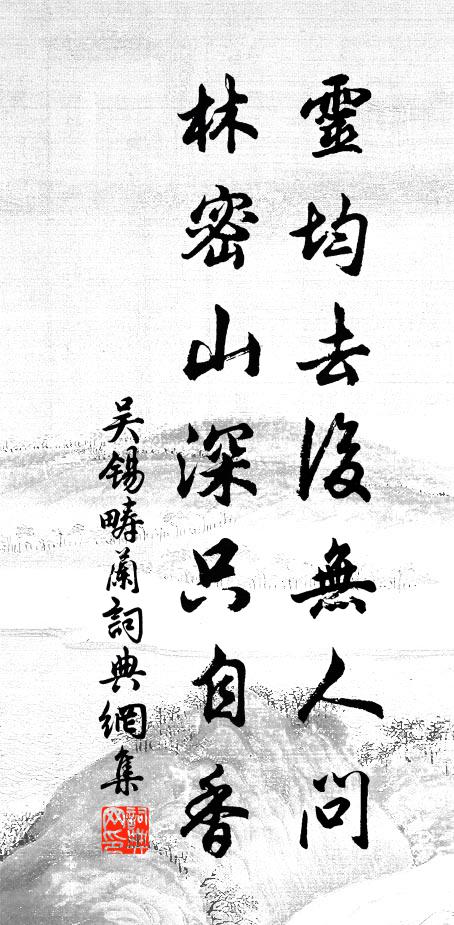 靈均去後無人問
林密山深只自香
吴錫疇蘭詞典網集